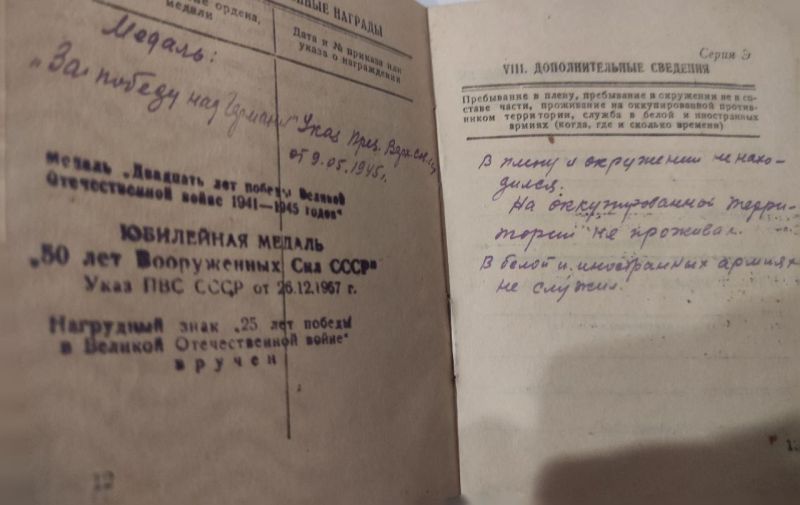 ные ордена,
медали
ННЫЕ НАГРАДЫ
Дата и № приказа или
указа о награждении
Медаль:
„За победу над Германией“ Указ През. Верх.
от 9.05.1945г.
Медаль „Двадцать лет победы Великой
Отечественной войне 1941—1945 годов“
ЮБИЛЕЙНАЯ МЕДАЛЬ
„50 лет Вооруженных Сил СССР“
Указ ПВС СССР от 26.12.1967 г.
Нагрудный знак „25 лет победы
в Великой Отечественной войне“
вручен
12
Серия Э
VIII. ДОПОЛНИТЕЛЬНЫЕ СВЕДЕНИЯ
Пребывание в плену, пребывание в окружении не в со-
ставе части, проживание на оккупированной против-
ником территории, служба в белой и иностранных
армиях (когда, где и сколько времени)
В плену и окружении не нахо-
дился.
На оккупированной терри-
тории не проживал.
В белой и иностранных армиях
не служил.
13